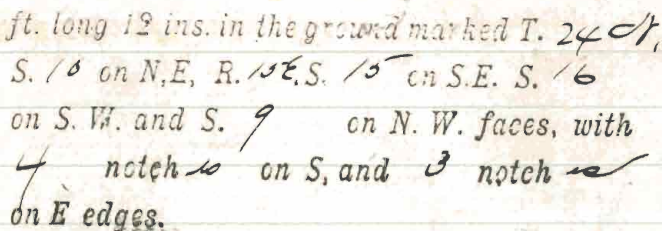 ft. long 12 ins. in the ground marked T. 24 N.
S. 10 on N.E, R. 15E. S. 15 on S.E. S. 16
on S. W. and S. 9 on N. W. faces, with
4 notches on S, and 3 notches
on E edges.